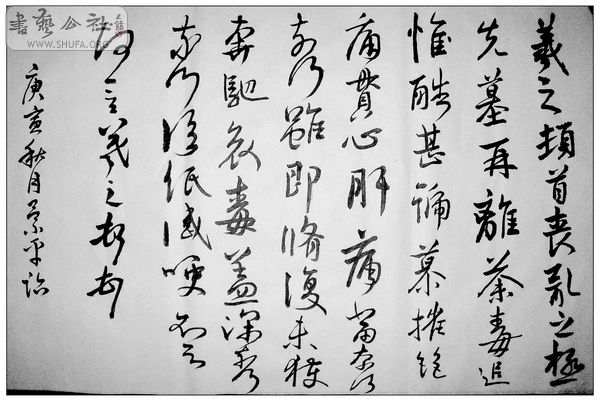 書藝公社
WWW.SHUFA.ORG
羲之頓首喪亂之極
先墓再離荼毒追
惟酷甚號慕摧絕
痛貫心肝痛當奈何
奈何雖即脩復未獲
奔馳哀毒益深奈何
奈何臨紙感哽不知
何言羲之頓首頓首
庚寅秋月景平臨